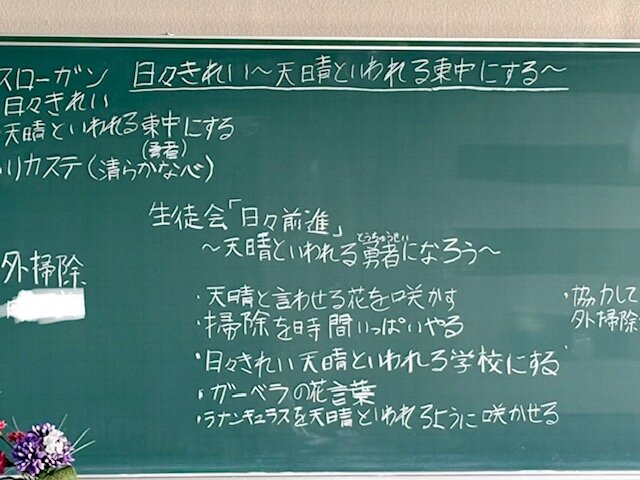 スローガン 日々きれい～天晴といわれる東中にする～
日々きれい
天晴といわれる東中にする
(勇者)
・リカステ(清らかな心)
生徒会「日々前進」
とうちゅうせい
～天晴といわれる勇者になろう～
外掃除
・天晴と言わせる花を咲かす
・掃除を時間いっぱいやる
・日々きれい天晴といわれる学校にする
・ガーベラの花言葉
・ラナンキュラスを天晴といわれるように咲かせる
・協力して
外掃除